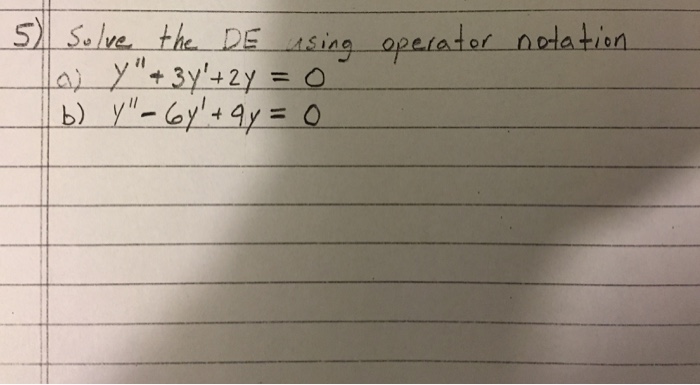 5) Solve the DE using operator notation
a) y" + 3y' + 2y = 0
b) y" - 6y' + 9y = 0